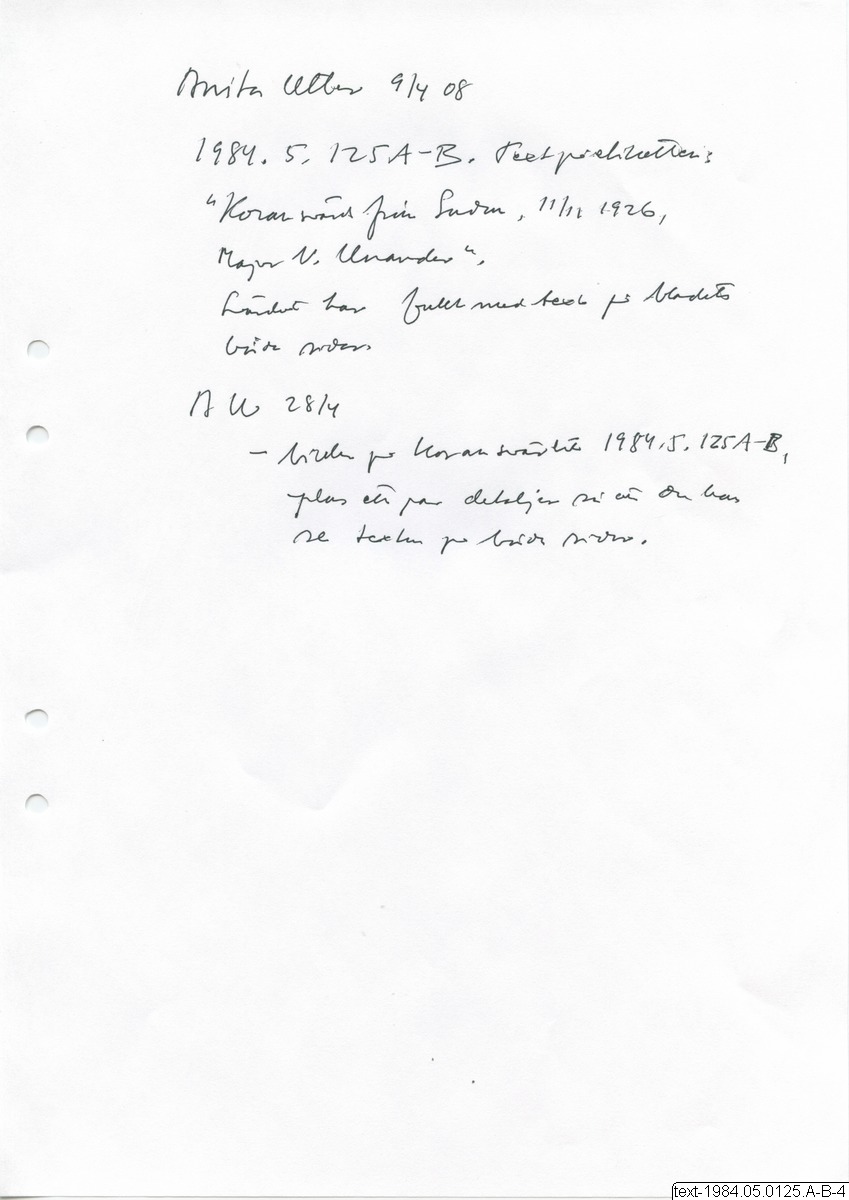 Anita Utter 9/4 08
1984.5.125A-B. Text på etiketten:
"Koransvärd från Sudan, 11/11 1926,
Major N. Unander".
Svärdet har fullt med text på bladets
båda sidor.
A U 28/4
- bilder på Koransvärdet 1984.5.125A-B,
plus ett par detaljer så att du kan
se texten på båda sidor.
text-1984.05.0125.A-B-4